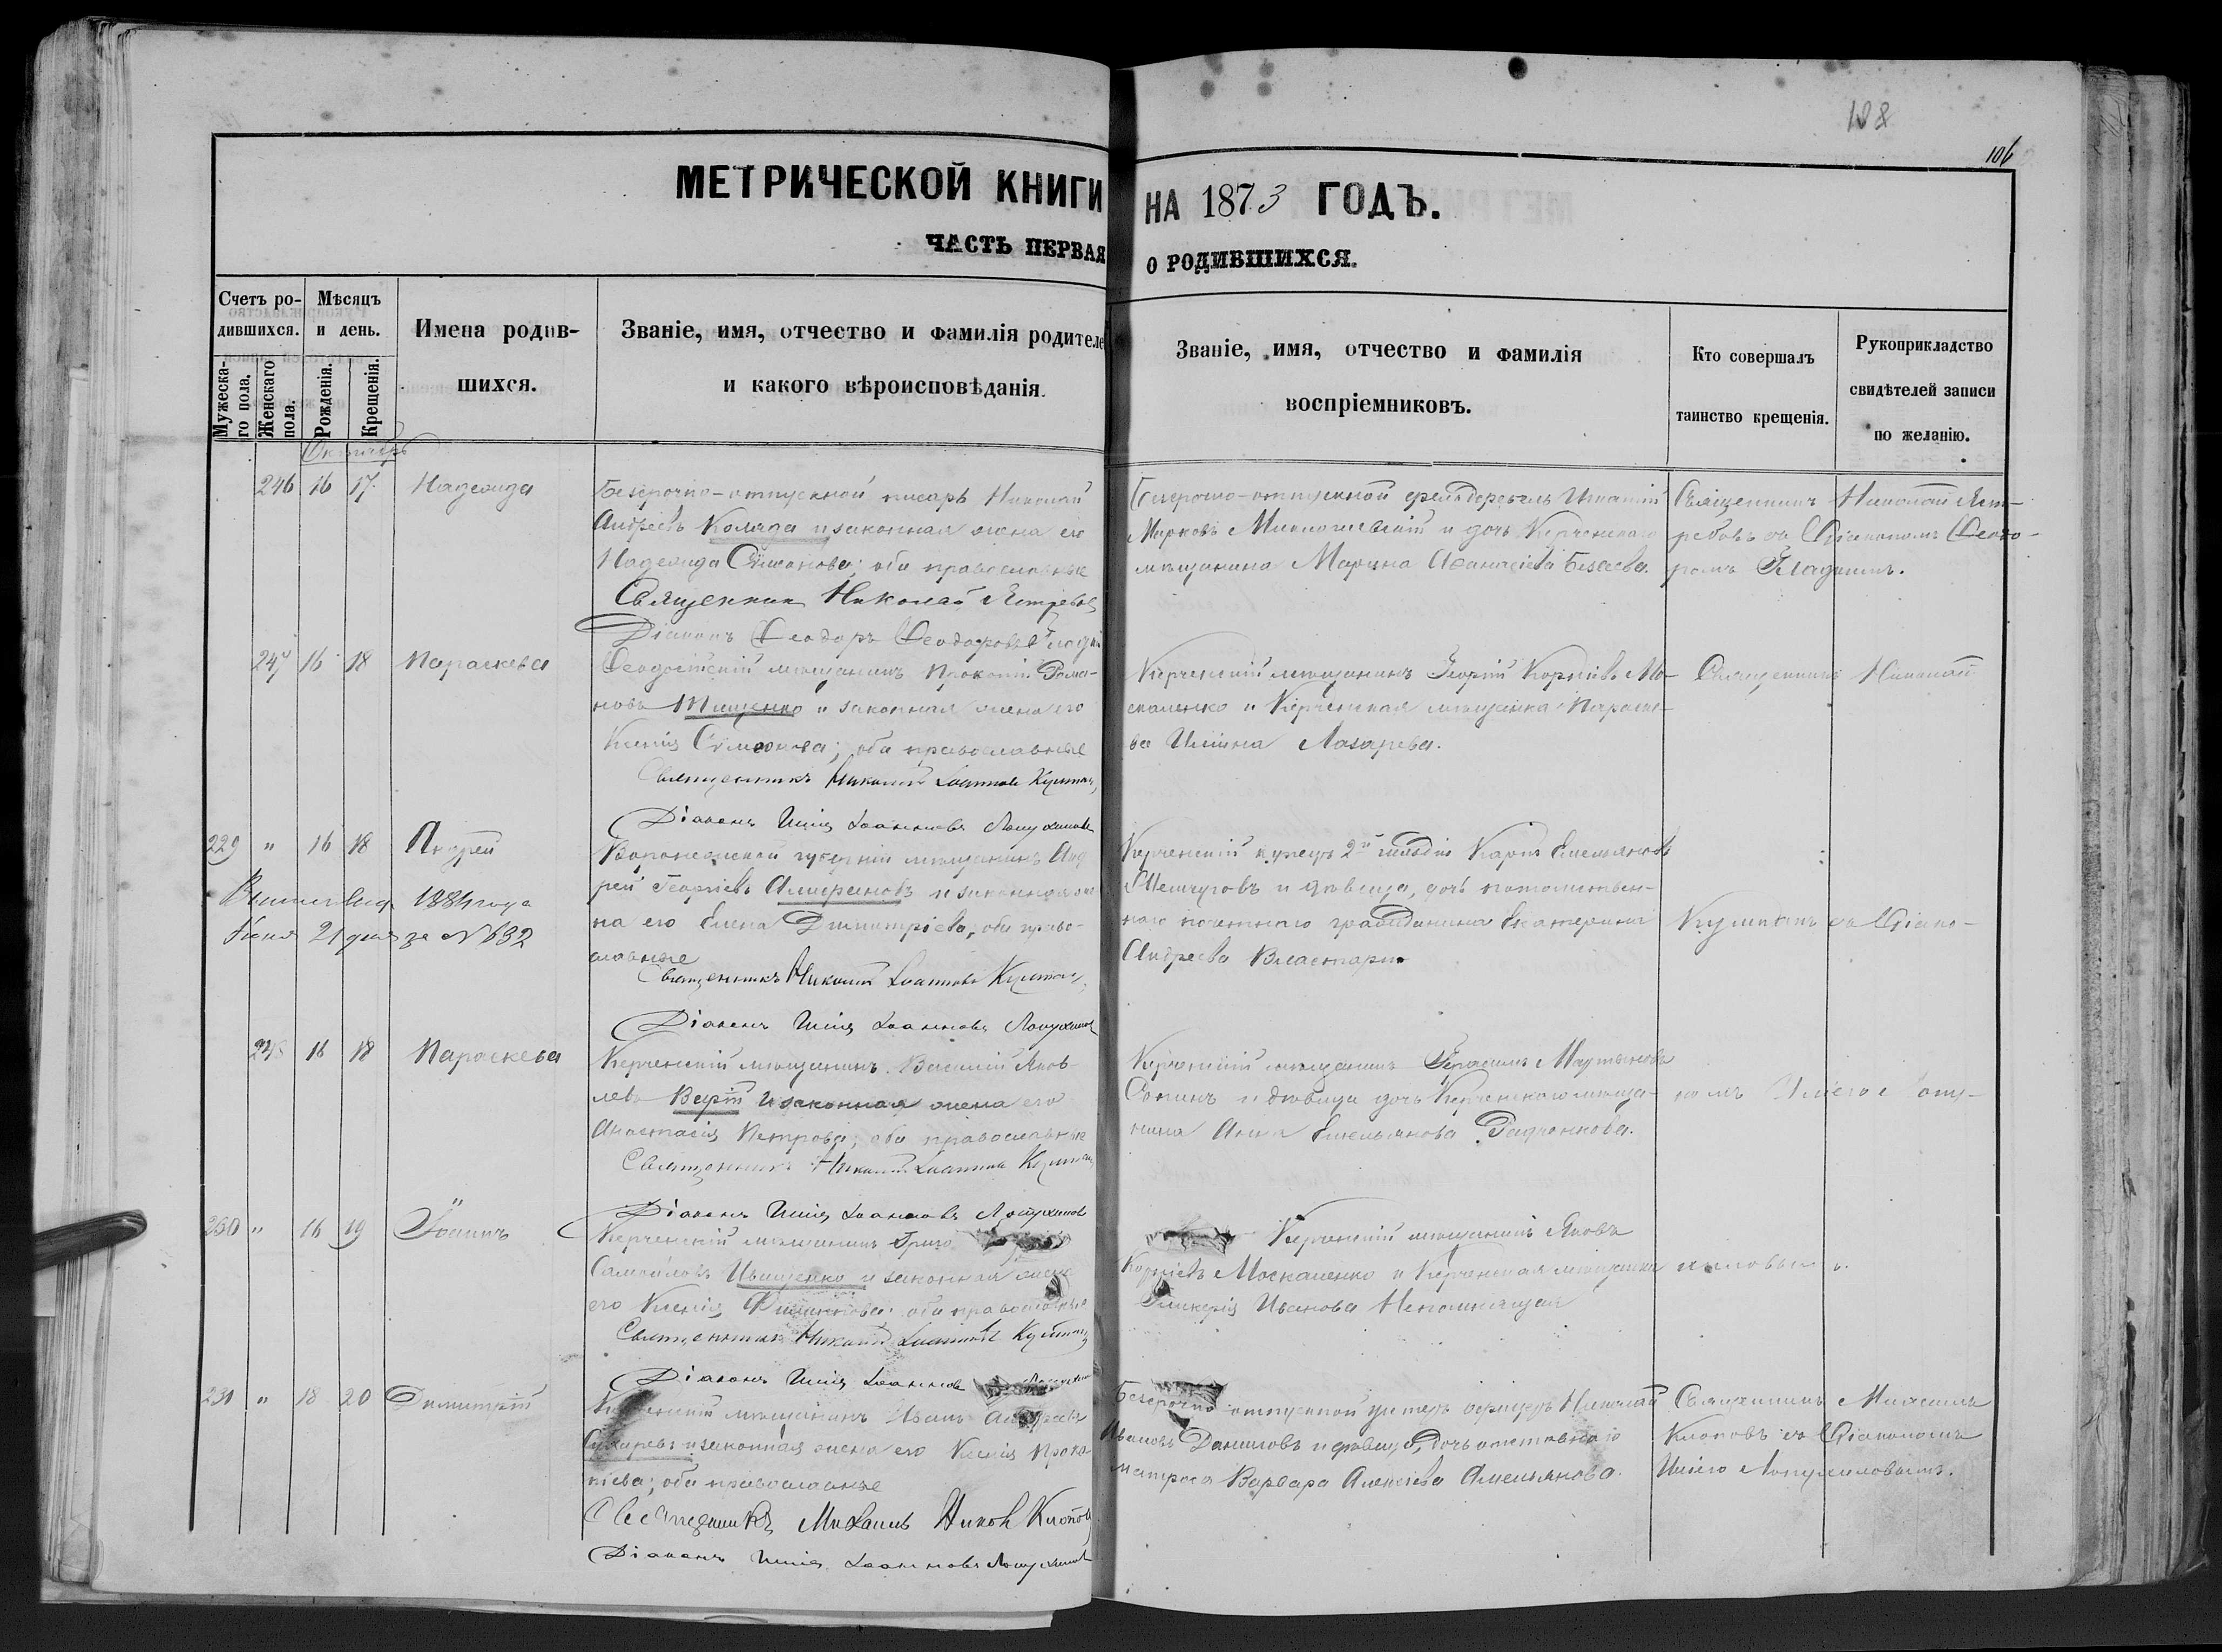 188
106
МЕТРИЧЕСКОЙ КНИГИ НА 1873 ГОДЪ.
ЧАСТЬ ПЕРВАЯ О РОДИВШИХСЯ.
Счетъ ро-
дившихся.
Мужеска-
го пола.
Женскаго
пола.
Мѣсяцъ
и день.
Рожденія.
Крещенія.
Имена родив-
шихся.
Званіе, имя, отчество и фамилія родителе
и какого вѣроисповѣданія.
Званіе, имя, отчество и фамилія
воспріемниковъ.
Кто совершалъ
таинство крещенія.
Рукоприкладство
свидѣтелей записи
по желанію.
Октябрь
246 16 17 Надежда
Безсрочно-отпускной писарь Николай
Андреевъ Коляда и законная жена его
Надежда Симонова; оба православные
Священник Николай Ястребов
Діаконъ Ѳеодоръ Ѳеодоровъ
Безсрочно-отпускной фельдфебель Игнатій
Марковъ и дочь Керченскаго
мѣщанина Марина Аѳанасіева Безаева.
Священникъ Николай Яст-
ребовъ съ Діакономъ Ѳеодо-
ромъ
247 16 18 Параскева
Ѳеодосійскій мѣщанинъ Прокопій Рома-
новъ Тищенко и законная жена его
Ксенія Симонова; оба православные
Священникъ Николай Іоанновъ
Діаконъ Илія Іоанновъ Лопухиновъ
Керченскій мѣщанинъ Георгій Корніевъ Мо-
скаленко и Керченская мѣщанка Параске-
ва Ильина Лазарева.
Священникъ Николай
229 " 16 18 Андрей
Выписъ выд. 1884 года
Іюня 21 дня за № 632
Воронежской губерніи мѣщанинъ Анд
рей Георгіевъ и законная же
на его Елена Димитріева, оба право-
славные
Священникъ Николай Іоанновъ
Діаконъ Илія Іоанновъ Лопухиновъ
Керченскій купецъ 2й гильдіи Карпъ Емельяновъ
и дѣвица, дочь потомствен-
наго почетнаго гражданина Екатерина
Андреева Власпари
съ Діако-
248 16 18 Параскева
Керченскій мѣщанинъ Василій Яков-
левъ и законная жена его
Анастасія Петрова; оба православные
Священникъ Николай Іоанновъ
Діаконъ Илія Іоанновъ Лопухиновъ
Керченскій мѣщанинъ Герасимъ Мартыновъ
и дѣвица дочь Керченскаго мѣща-
нина Анна Емельянова
номъ Иліею Лопу-
230 " 16 19 Іоаннъ
Керченскій мѣщанинъ Григо
Самойловъ Иващенко и законная жена
его Ксенія оба православные
Священникъ Николай Іоанновъ
Діаконъ Илія Іоанновъ
Керченскій мѣщанинъ Яковъ
Корніевъ Москаленко и Керченская мѣщанка
Гликерія Иванова Непомнящая
хиновымъ.
231 " 18 20 Димитрій
Керченскій мѣщанинъ Иванъ Андреевъ
Сухаревъ и законная жена его Ксенія Проко
піева; оба православные
Священникъ Михаилъ Клоповъ
Діаконъ Илія Іоанновъ Лопухиновъ
Безсрочно отпускной унтеръ офицеръ Николай
Ивановъ Даниловъ и дѣвица, дочь отставнаго
матроса Варвара Алексѣева Амельянова.
Священникъ Михаилъ
Клоповъ съ Діакономъ
Иліею Лопухиновымъ.